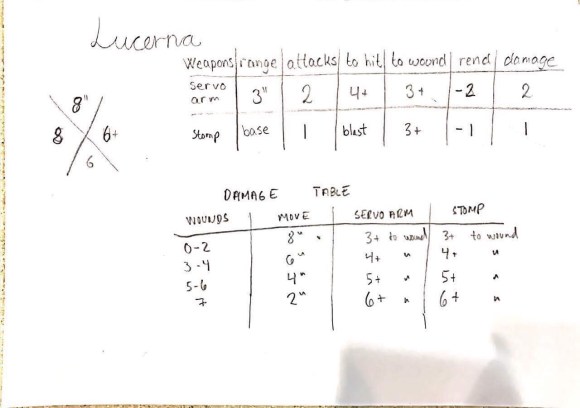 Lucerna
Weapons range attacks to hit to wound rend damage
Servo arm 3" 2 4+ 3+ -2 2
Stomp base 1 blast 3+ -1 1
8"
8 6+
6
DAMAGE TABLE
WOUNDS MOVE SERVO ARM STOMP
0-2 8" 3+ to wound 3+ to wound
3-4 6" 4+ " 4+ "
5-6 4" 5+ " 5+ "
7 2" 6+ " 6+ "